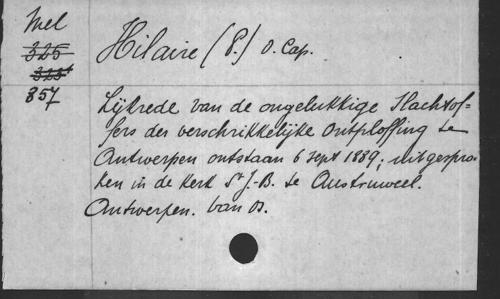 Mel
325
323
857
Hilaire (P.) O. Cap.
Lijkrede van de ongelukkige Slachtof-
fers der verschrikkelijke ontploffing te
Antwerpen ontstaan 6 sept 1889, uitgespro-
ken in de Kerk St J.-B. te Austruweel.
Antwerpen. Van Os.